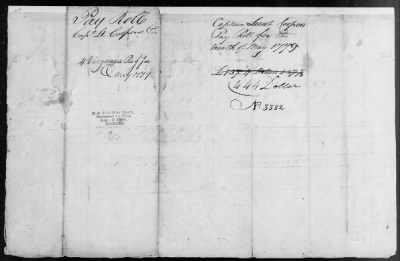 Pay Roll
Capt. Lt. Coopers Co.
4 Virginia Regt for
May 1779
Captain Lieut Coopers
Pay Roll for the
Month of May 1779
444 Dollars
No. 3382